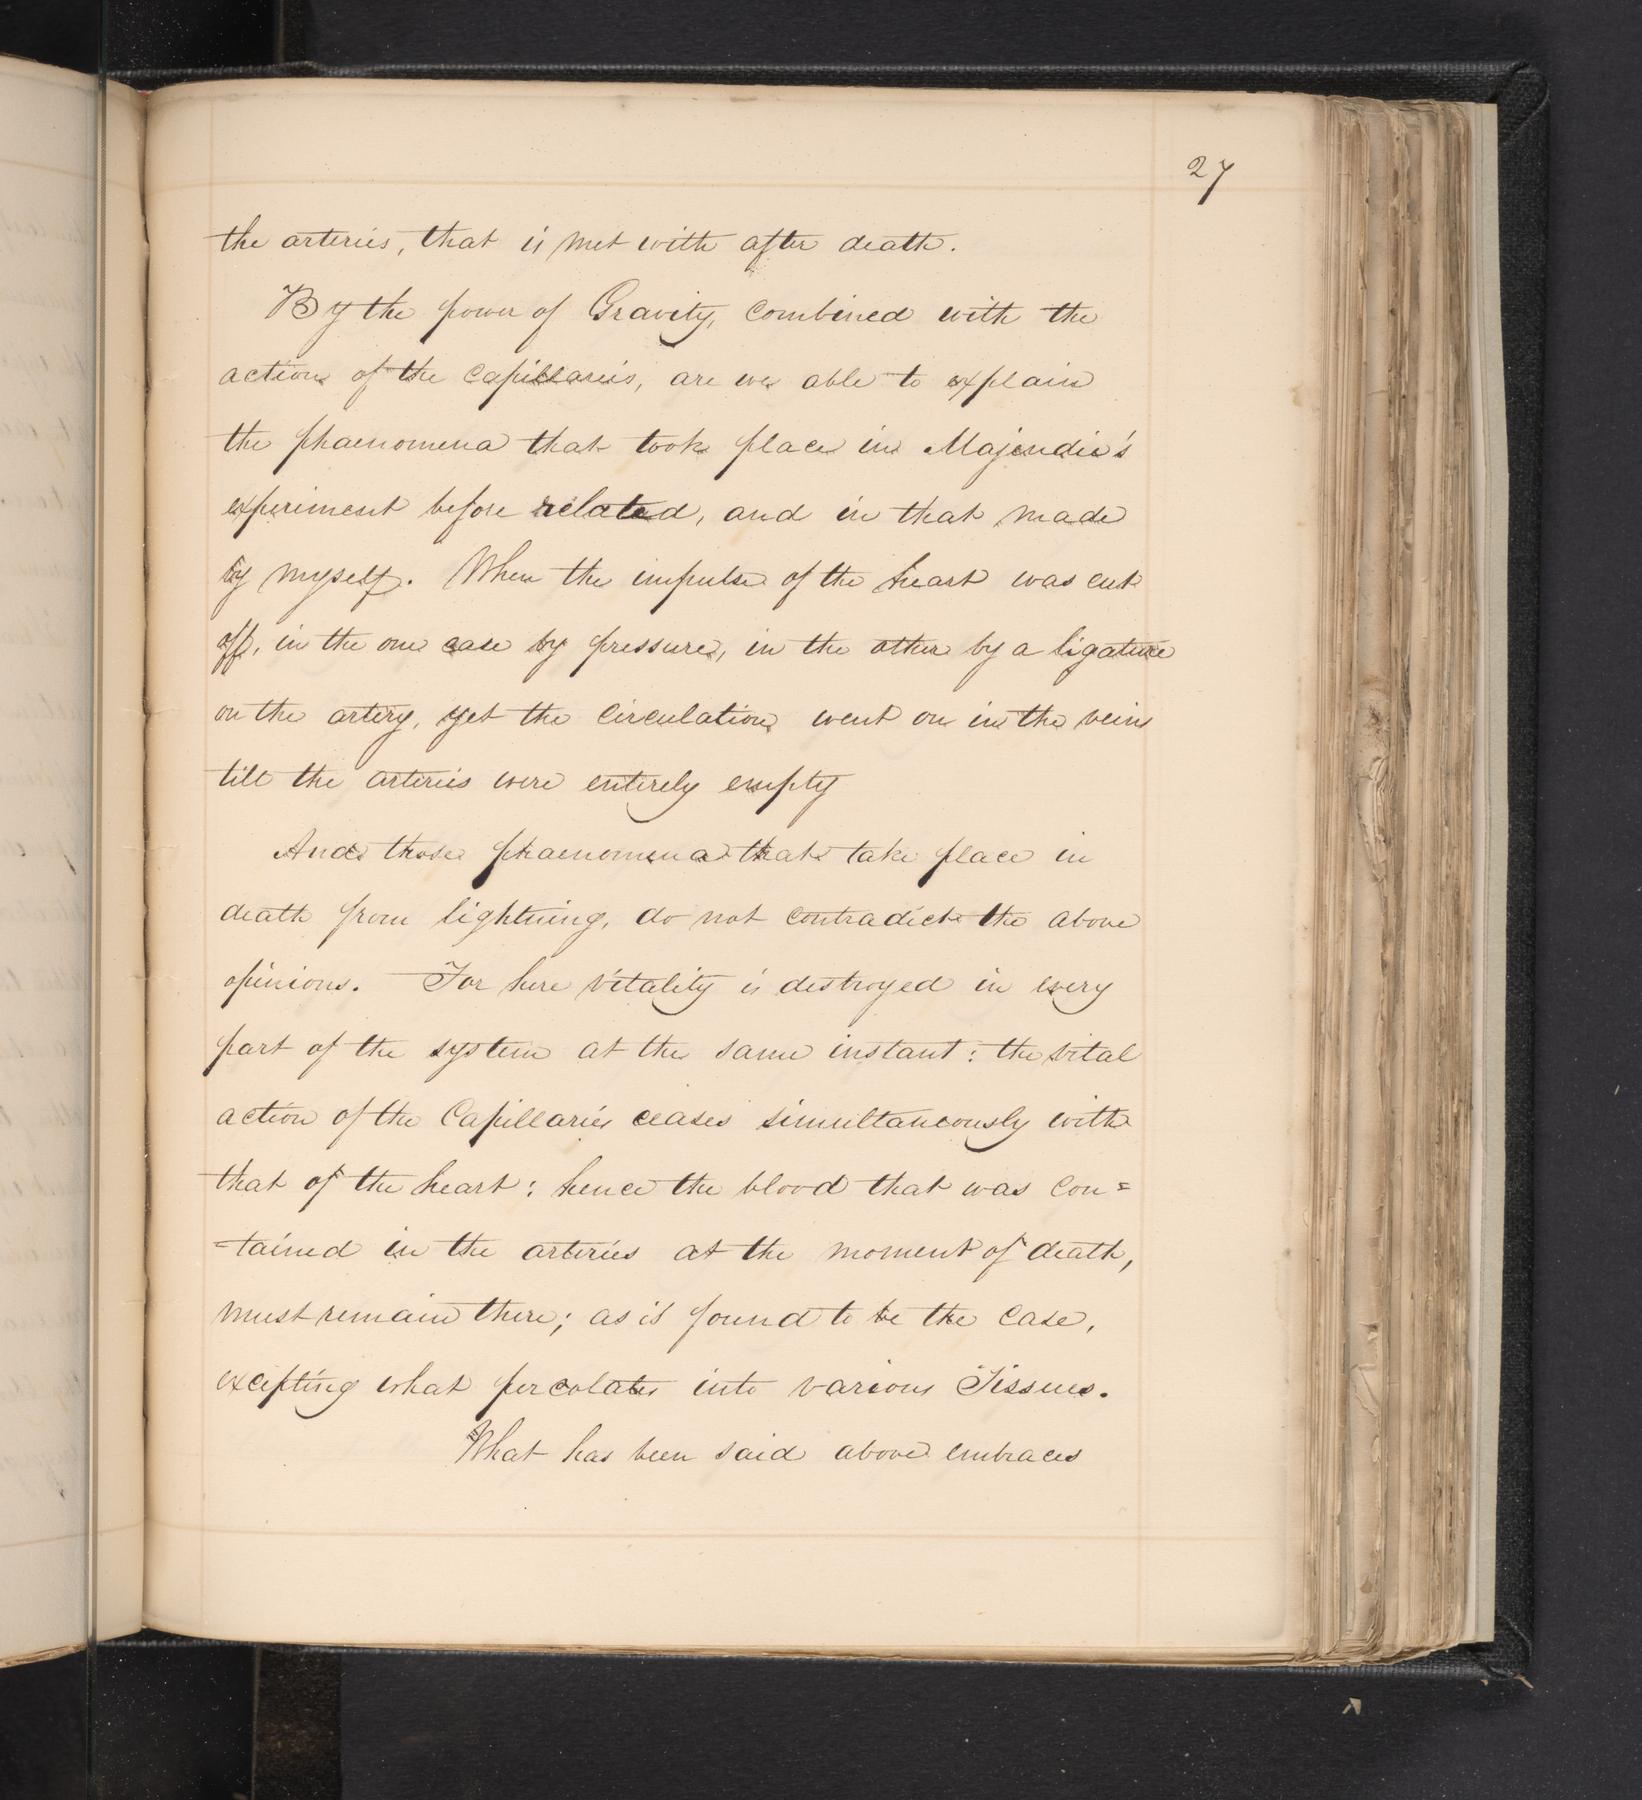 27
the arteries, that is met with after death.
By the power of Gravity, combined with the
action of the capillaries, are we able to explain
the phaenomena that took place in Majendie's
experiment before related, and in that made
by myself. When the impulse of the heart was cut
off, in the one case by pressure, in the other by a ligature
on the artery, yet the circulation went on in the veins
till the arteries were entirely empty
And those phaenomena that take place in
death from lightning, do not contradict the above
opinions. For here vitality is destroyed in every
part of the system at the same instant: the vital
action of the Capillaries ceases simultaneously with
that of the heart: hence the blood that was con=
=tained in the arteries at the moment of death,
must remain there; as is found to be the case,
excepting what percolates into various Tissues.
What has been said above embraces